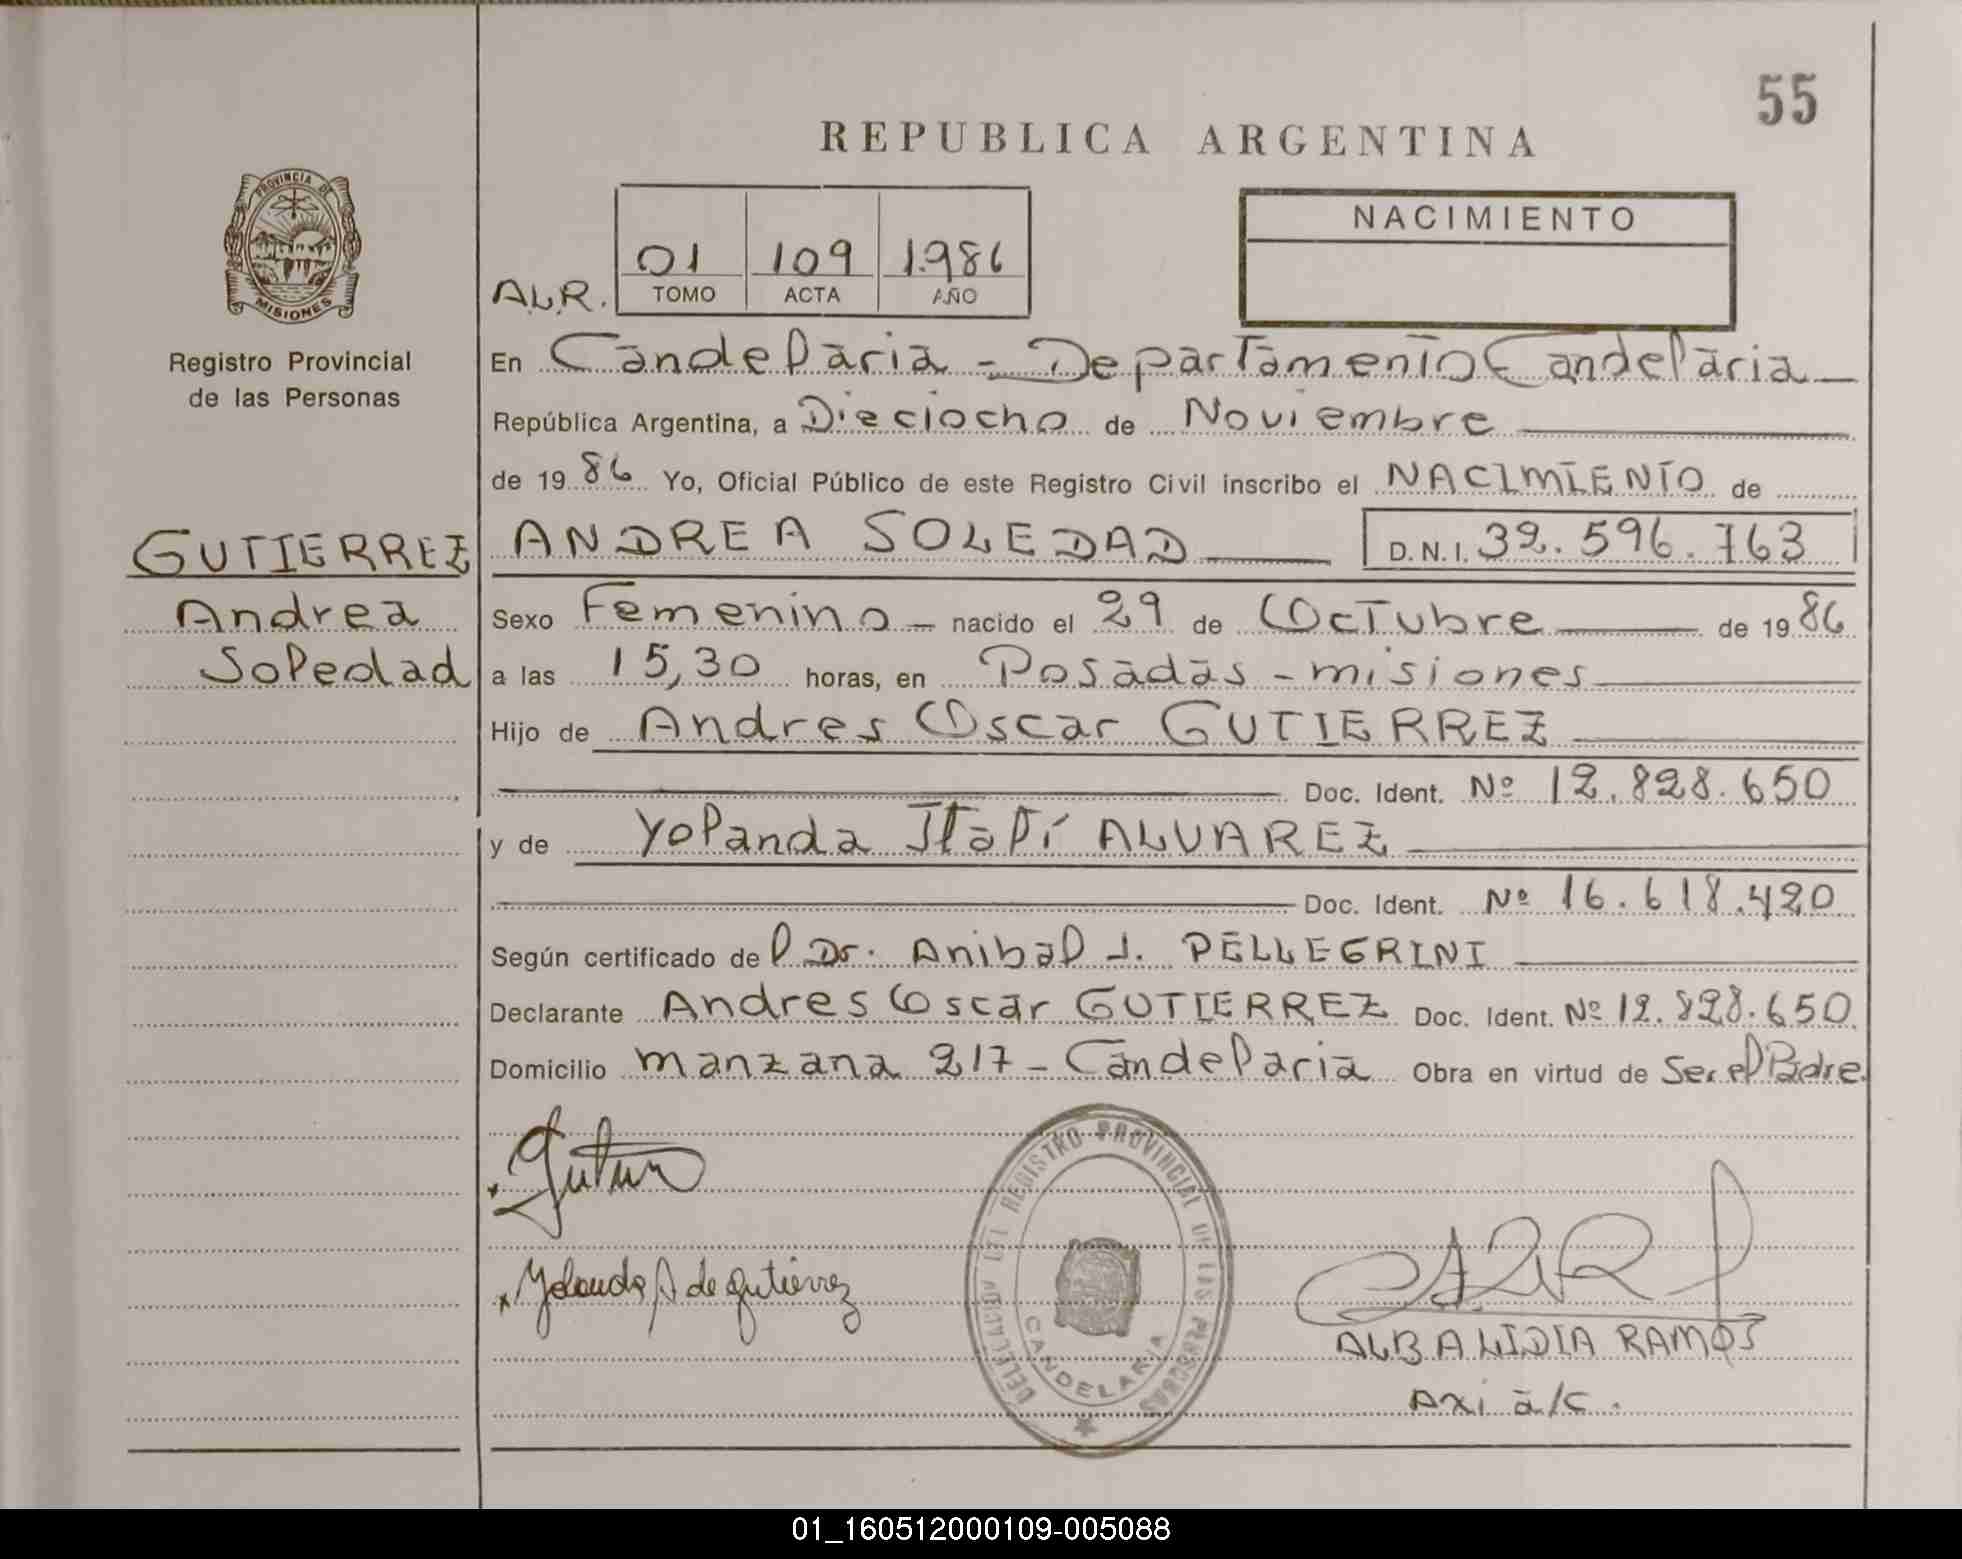 55
REPUBLICA ARGENTINA
PROVINCIA DE
MISIONES
Registro Provincial
de las Personas
NACIMIENTO
01 109 1.986
A.L.R. TOMO ACTA AÑO
En Candelaria - Departamento Candelaria
República Argentina, a Dieciocho de Noviembre
de 19 86 Yo, Oficial Público de este Registro Civil inscribo el NACIMIENTO de
GUTIERREZ ANDREA SOLEDAD D.N.I. 32.596.763
Andrea Sexo Femenino nacido el 29 de Octubre de 19 86
Soledad a las 15,30 horas, en Posadas - misiones
Hijo de Andres Oscar GUTIERREZ
Doc. Ident. Nº 12.828.650
y de Yolanda Itatí ALVAREZ
Doc. Ident. Nº 16.618.420
Según certificado de l Dr. Anibal J. PELLEGRINI
Declarante Andres Oscar GUTIERREZ Doc. Ident. Nº 12.828.650
Domicilio manzana 217 - Candelaria Obra en virtud de Ser el Padre
Yolanda A de Gutierrez
DELEGACION DEL REGISTRO PROVINCIAL DE LAS PERSONAS
CANDELARIA
ALBA LIDIA RAMOS
Axi a/c.
01_160512000109-005088